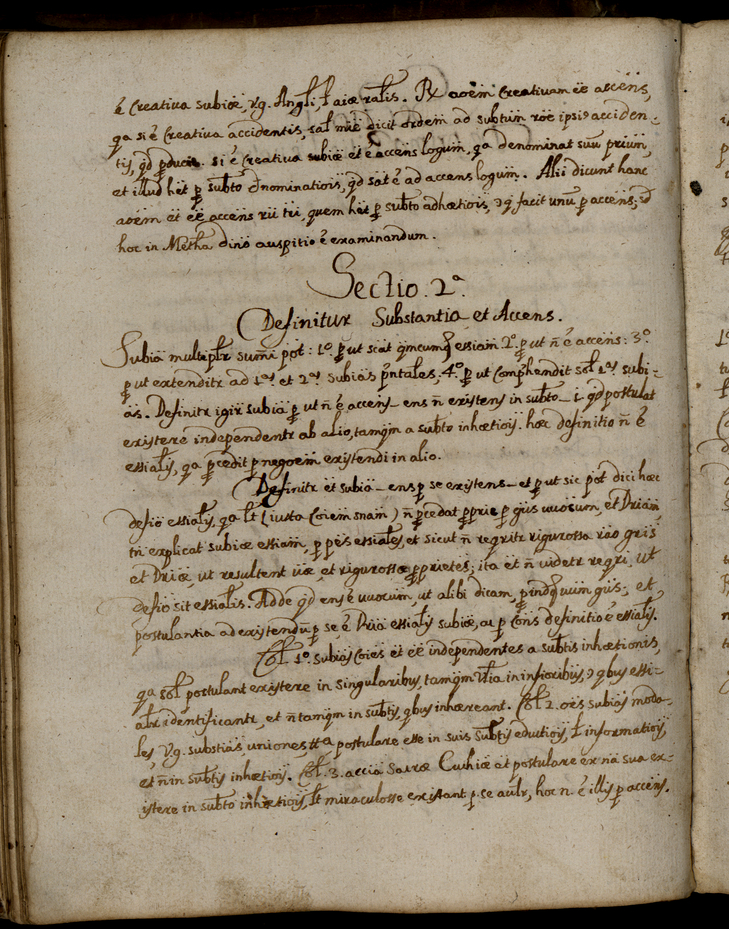 é Creativa subiæ, vg. Angli, ł aiæ ralis. R̃ aoẽm Creativam ẽe accẽns,
qa si é Creativa accidentis, sal mẽ dicit ordem ad subtum rõe ipsis acciden-
tis, qd pducit. si é Creativa subiæ et é accens logum, qa denominat suũ prium,
et illud hẽt p subto dnominatiois, qd sat é ad accens logum. Alii dicunt hanc
aoem ẽt ẽe accẽns rii tri, quem hẽt p subto adhætiois, facit unũ p accens; sd
hoc in Metha dino auspitio é examinandum.
Sectio. 2ª.
Definitur Substantia et Accens.
Subia multiplr sumi pot: 1º. put scat qmcumq essiam 2º. put ñ é accens: 3º.
put extenditr ad 1as et 2as subias pntales, 4º. put comphendit sol 1as subi-
as. Definitr igir subia put ñ é accens ens ñ existens in subto i. qd postulat
existere independentr ab alio, tamqm a subto inhætiois. hæc definitio ñ é
essialis, qa pcedit p negoem existendi in alio.
Definitr ẽt subia ens p se existens et put sic pot dici hæc
defio essialis, qa lt (iuxta Coiem snam) ñ pcedat pprie p gus uuocum, et Driam
tñ explicat subiæ essiam, p pes essiales, et sicut ñ reqritr rigurossa rao gris
et Driæ, ut resultent uiæ, et rigurossæ pprietes; ita et ñ videtr reqri, ut
defio sit essialis. Adde qd ens é uuocum, ut alibi dicam, pindq uim gus; et
postulantia ad existendũ p se é Dria essialis subiæ, ac p cons definitio é essialis.
Col. 1º. subias Coies ẽt ẽe independentes a subtis inhætionis,
qa sol postulant existere in singularibus, tamqm Ulia in inferioribus, qbus essi-
alr identificantr, et ñ tamqm in subtis, qbus inhæreant. Col. 2. oẽs subias moda-
les, vg. substias, uniones, postulare esse in suis subtis eductiois, ł informatiois,
et ñ in subtis inhætiois. Col. 3. accia Sacræ Euchiæ ẽt postulare ex nã sua ex-
istere in subto inhætiois, lt miraculosse existant p se aulr, hoc n. é illis p accens.